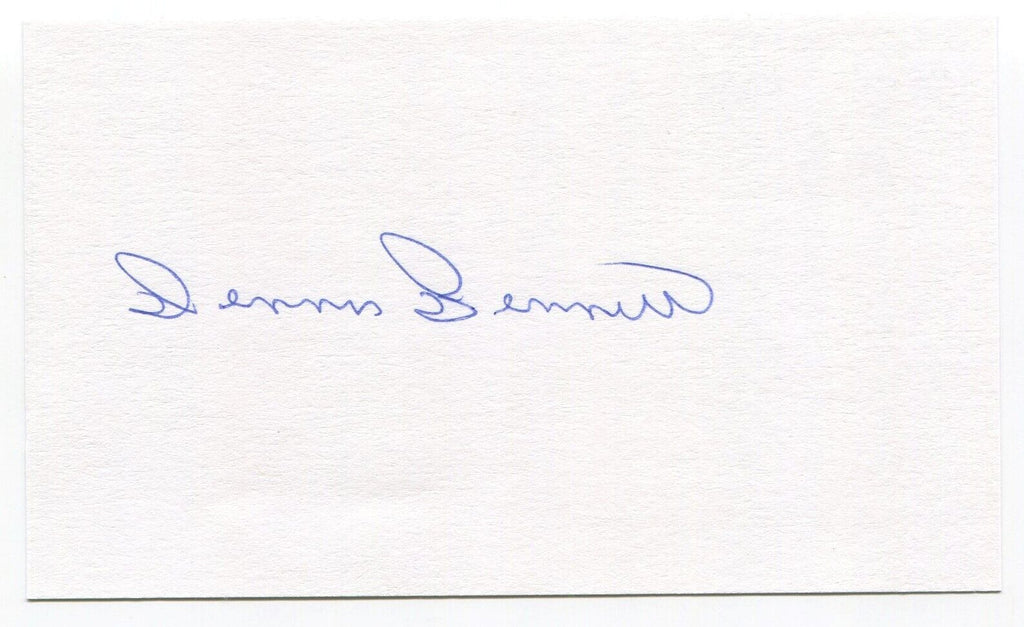 Dennis Bennett